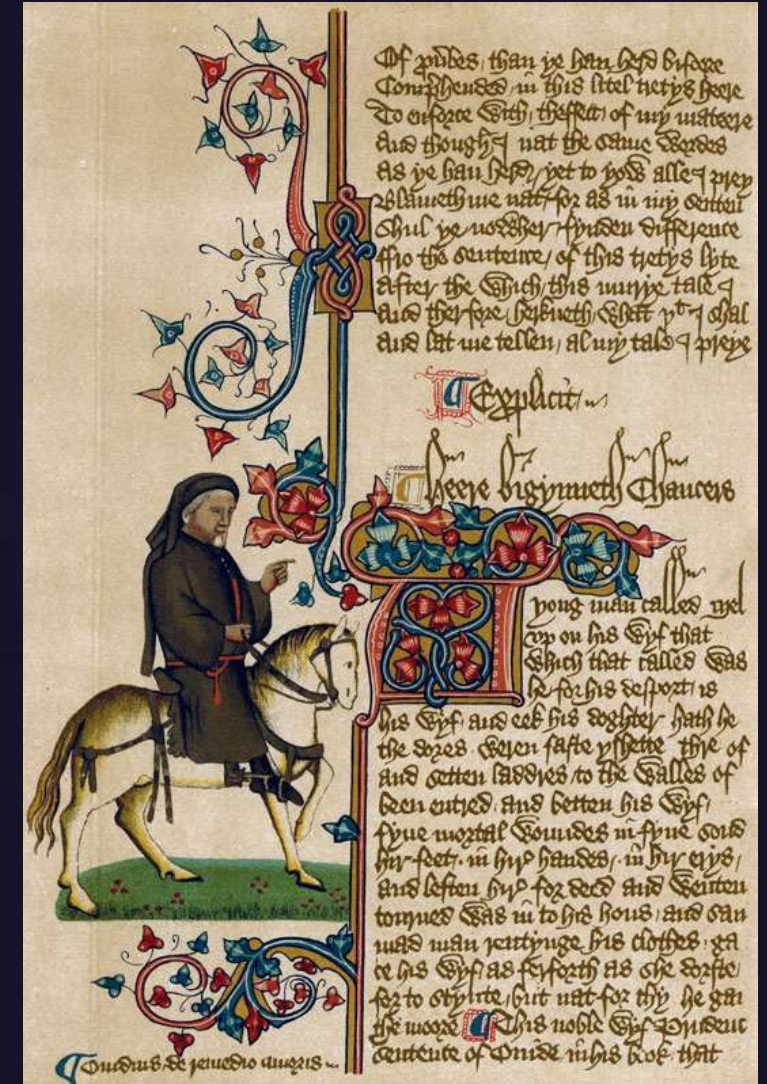 Of prũbes, than ye han herd bifore
Comp̱hended, in this litel tretys heere
To enforce with, theffect, of my mateere
And though I nat the same wordes
As ye han herd, yet to yow alle I prey
Blameth me nat, for as in my senten
Shul ye nowher fynden difference
ffro the sentence, of this tretys lyte
After the which, this murye tale I
And therfore, herkneth, what yt I shal
And lat me tellen, al my tale I preye
Explicit
Heere bigynneth Chaucers
yong man called Mel
vp on his wyf that
which that called was
he for his desport, is
his wyf, and eek his doghter hath he
the dores weren faste yshette thre of
and setten laddres, to the walles of
been entred, and betten his wyf,
fyue mortal woundes in fyue sond
hir feet, in hir handes, in hir erys,
and leften hir for deed and wenten
tourned was in to his hous, and sau
mad man rentynge his clothes, ga
ce his wyf, as ferforth as she dorste,
for to stynte, but nat for thy he gan
the moore This noble wyf Prudenc
sentence of Ouide, in his book, that
Ouidius de remedio amoris